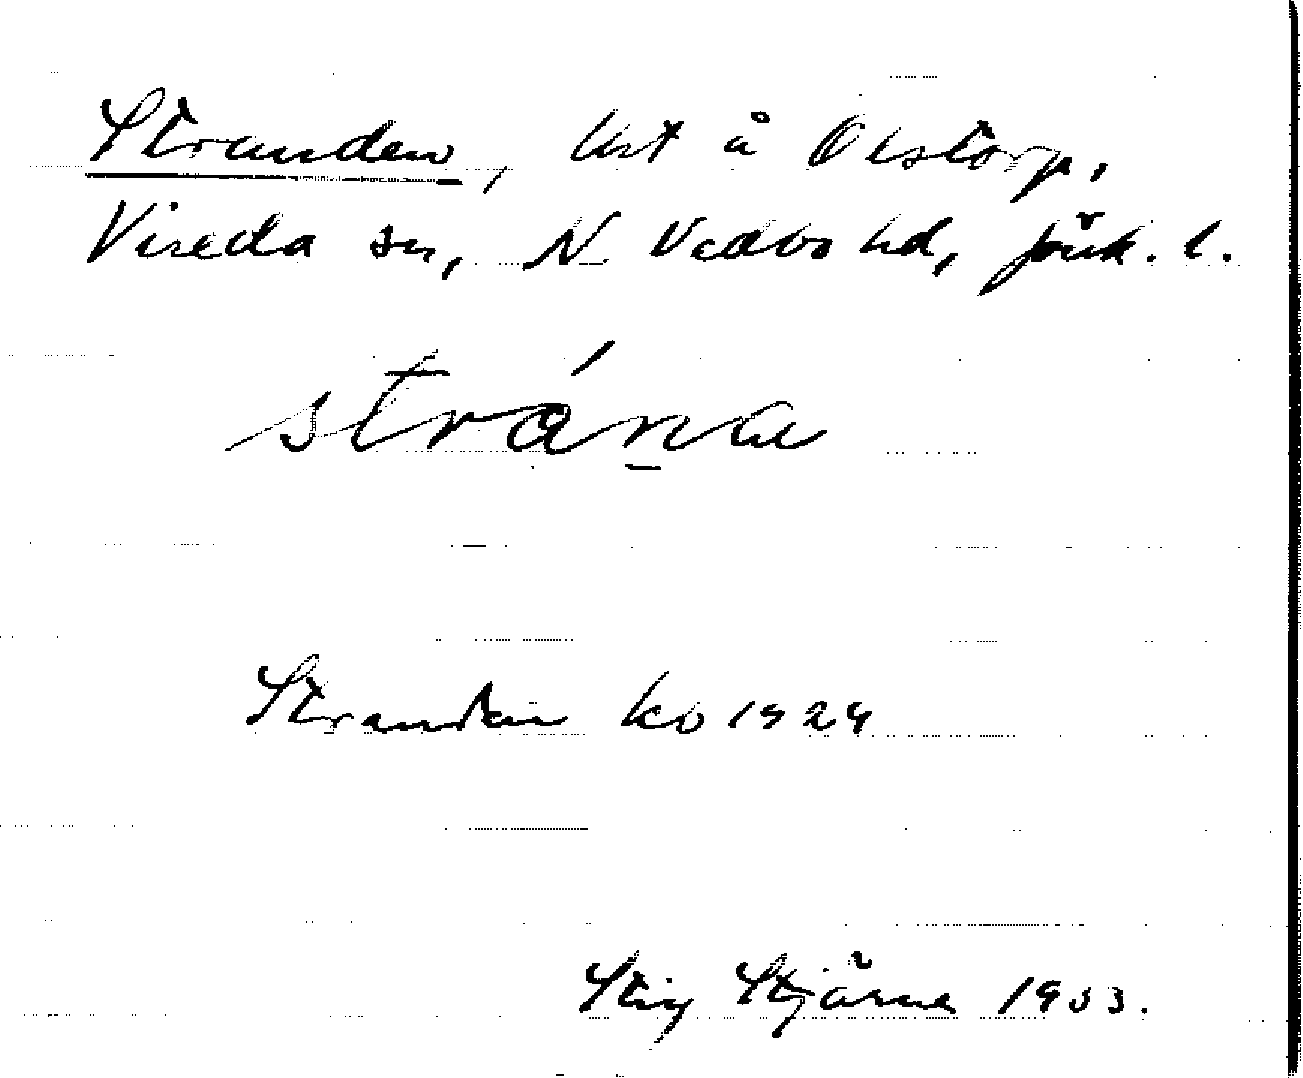 Stranden, lht å Olstorp,
Vireda sn, N Vedbo hd, Jönk. l.
strána
Stranden kb 1929
Stig Stjärne 1933.